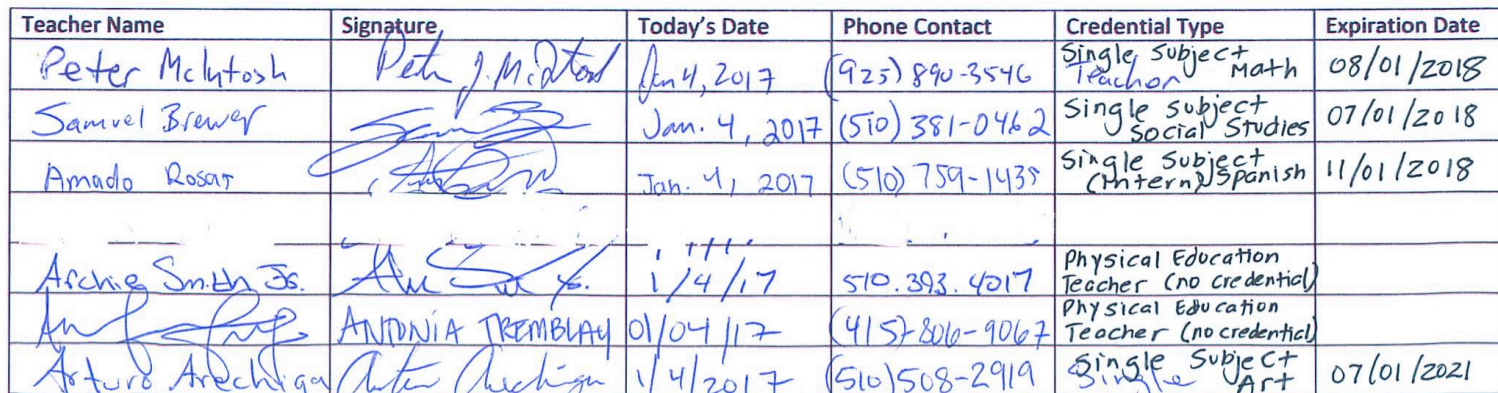 Teacher Name Signature Today's Date Phone Contact Credential Type Expiration Date
Peter McIntosh Peter J. McIntosh Jan 4, 2017 (925) 890-3546 Single Subject Math Teacher 08/01/2018
Samuel Brewer Jan. 4, 2017 (510) 381-0462 Single Subject Social Studies 07/01/2018
Amado Rosas Jan. 4, 2017 (510) 759-1435 Single Subject (Intern) Spanish 11/01/2018
Archie Smith Jr. 1/4/17 510.393.4017 Physical Education Teacher (no credential)
ANTONIA TREMBLAY 01/04/17 (415)-806-9067 Physical Education Teacher (no credential)
Arturo Arechiga Arturo Arechiga 1/4/2017 (510)508-2919 Single Subject Art 07/01/2021